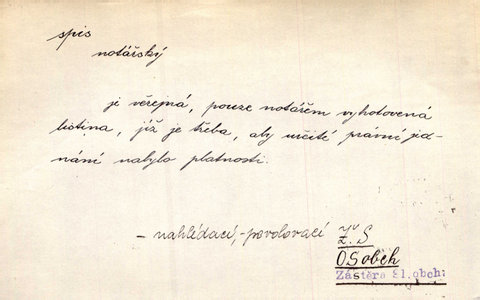 spis
notářský
je veřejná, pouze notářem vyhotovená
listina, jíž je třeba, aby určité právní jed-
nání nabylo platnosti.
- nahlédací, - povolovací Z. S
O S oběh
Zástěra Sl. obch: